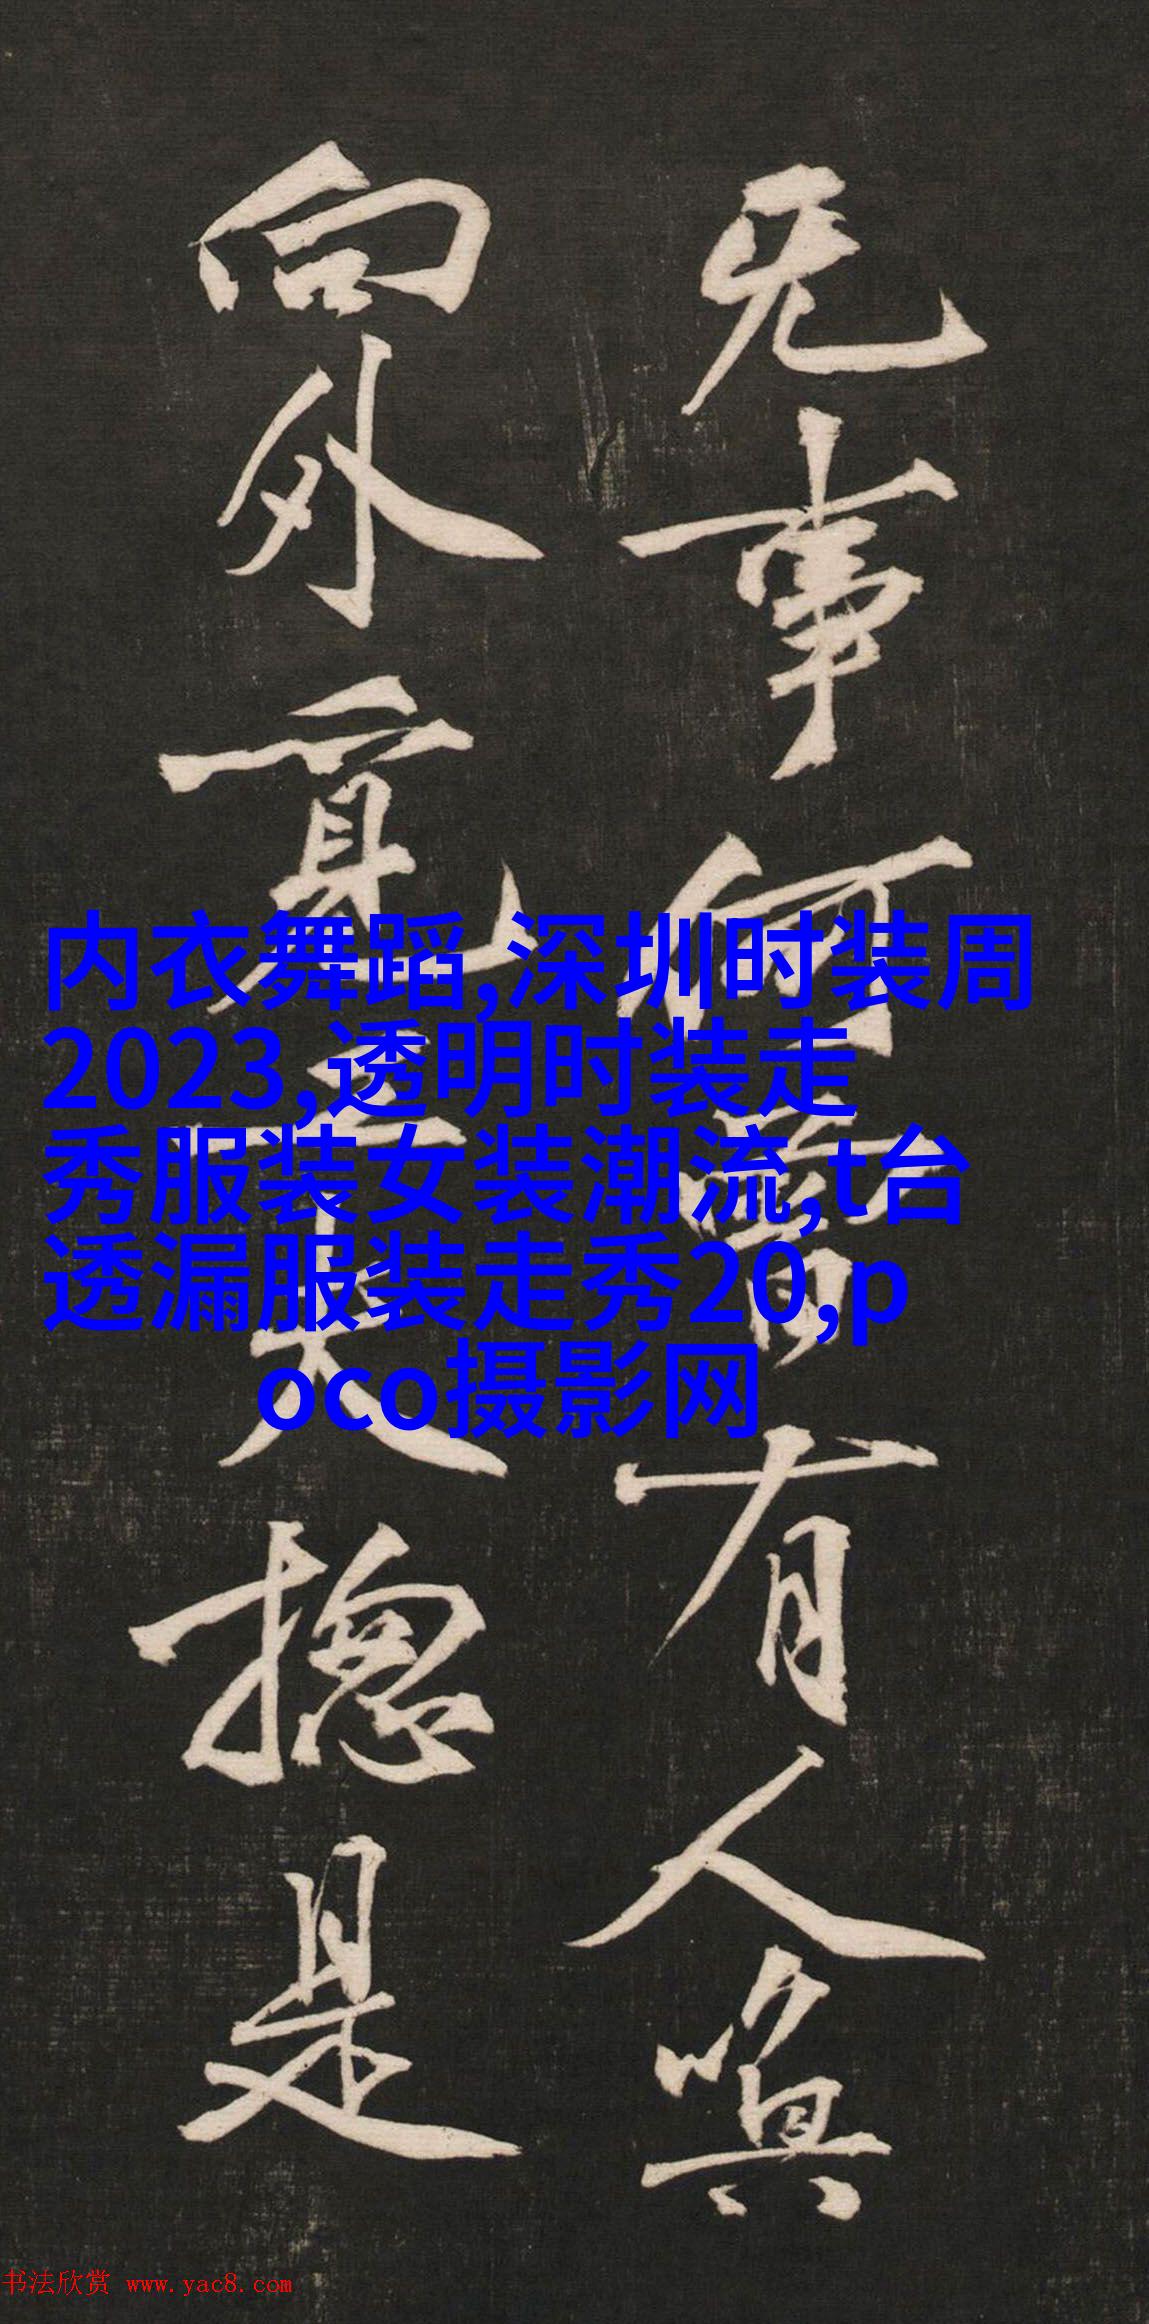 无事何曾有人喚
向外寛大揔是
内衣舞蹈,深圳时装周
2023,透明时装走
秀服装女装潮流,t台
透漏服装走秀20,p
oco摄影网
书法欣赏 www.yac8.com